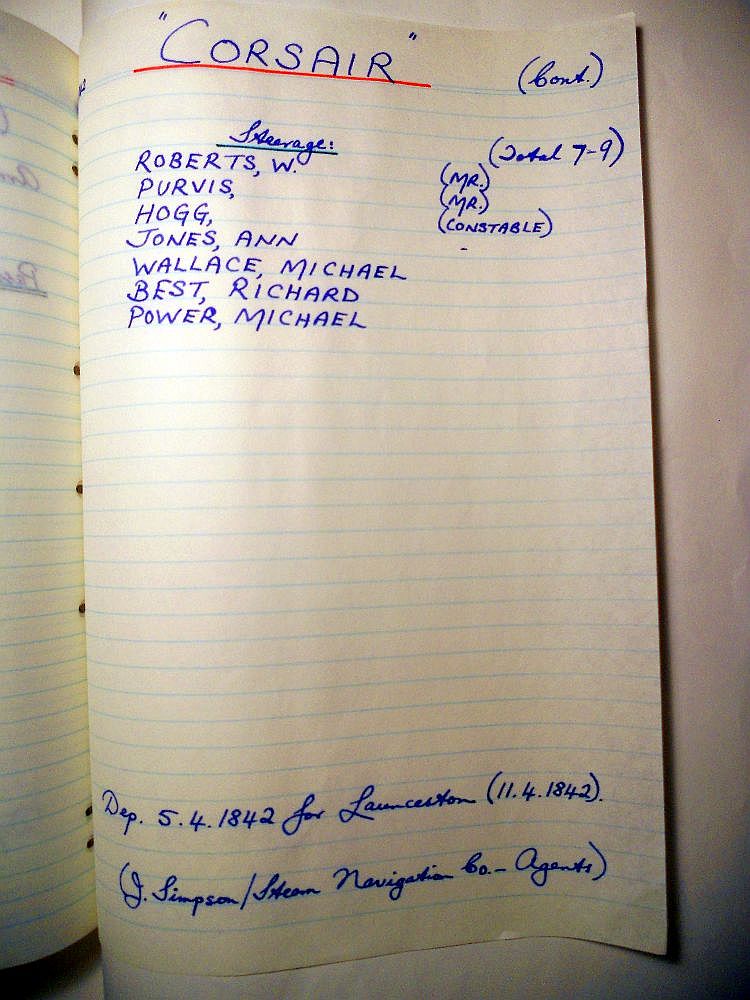 "CORSAIR"
(Cont.)
Steerage:
(Total 7-9)
ROBERTS, W. (MR.)
PURVIS, (MR.)
HOGG, (CONSTABLE)
JONES, ANN -
WALLACE, MICHAEL
BEST, RICHARD
POWER, MICHAEL
Dep. 5.4.1842 for Launceston (11.4.1842).
(J. Simpson/Steam Navigation Co.- Agents)